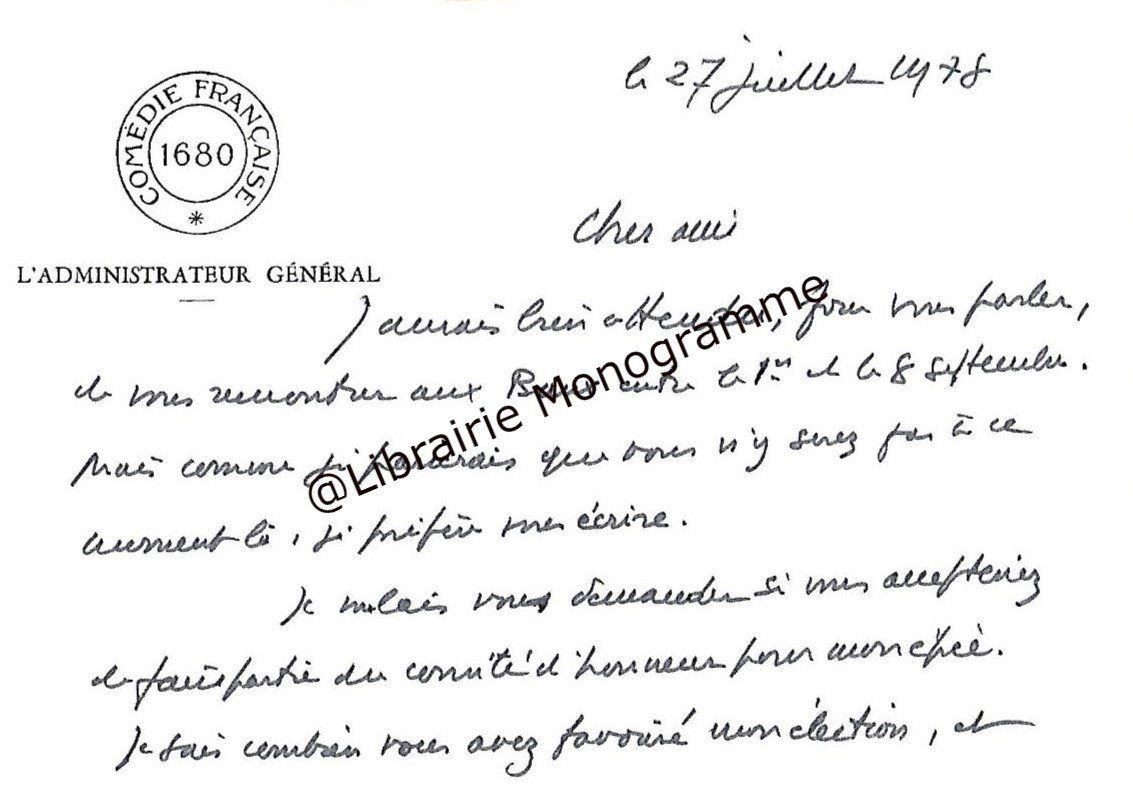 le 27 juillet 1978
COMÉDIE FRANÇAISE
1680
*
Cher ami
L'ADMINISTRATEUR GÉNÉRAL
J'aurais bien attendu, pour vous parler,
de vous rencontrer aux entre le 1er et le 8 septembre.
@Librairie Monogramme
Mais comme je que vous n'y serez pas à ce
moment-là, je préfère vous écrire.
Je voulais vous demander si vous accepteriez
de faire partie du comité d'honneur pour mon épée.
Je sais combien vous avez favorisé mon élection, et